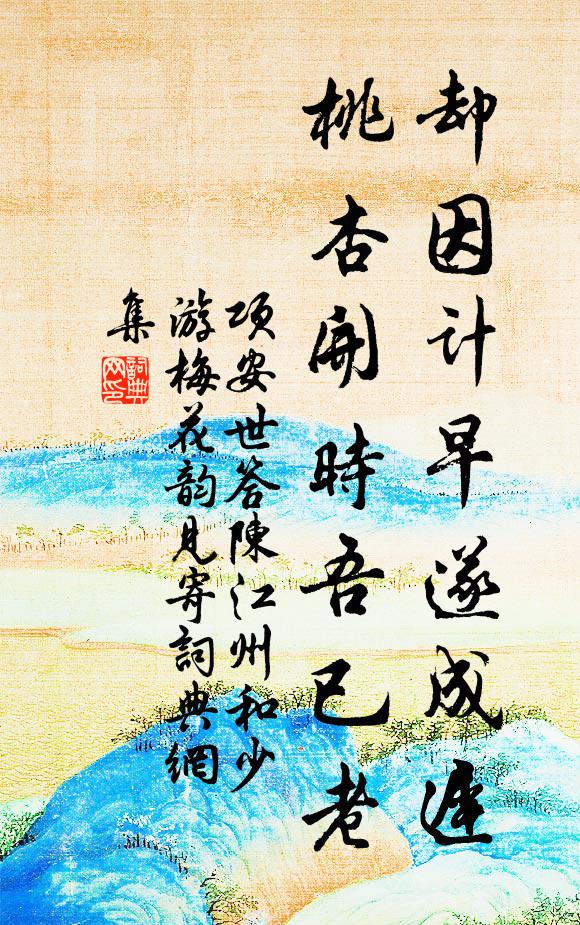 却因计早遂成遲
桃杏開時吾已老
项安世答陳江州和少
游梅花韵見寄詞典網
集
詞典
网印